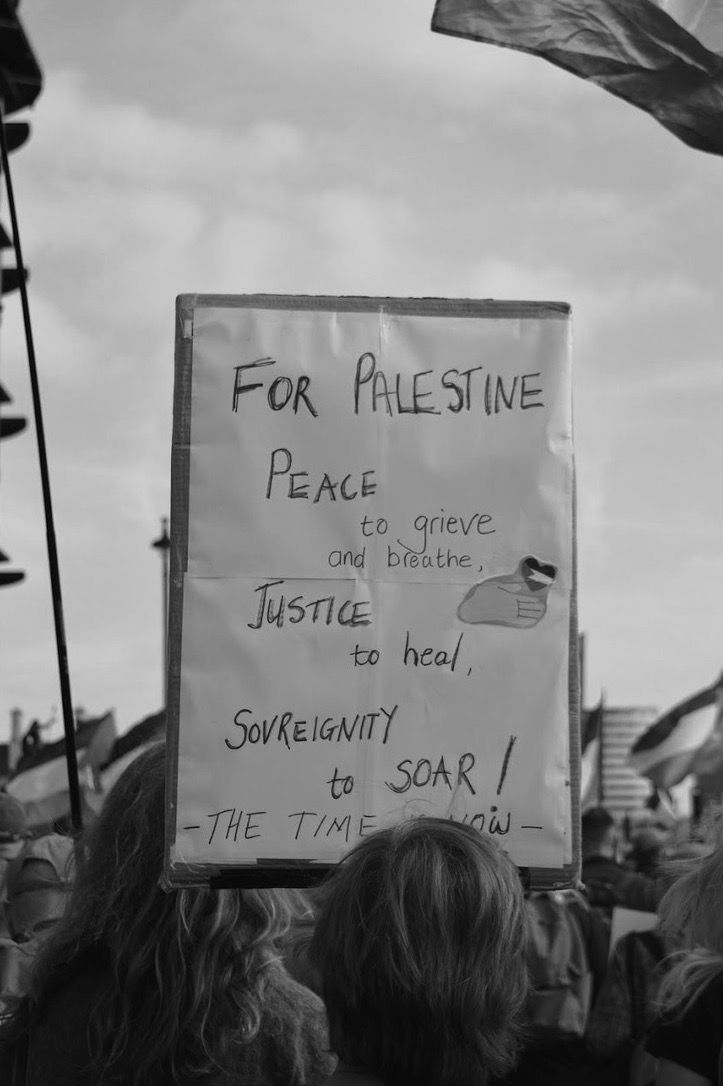 FOR PALESTINE
PEACE
to grieve
and breathe,
JUSTICE
to heal,
SOVREIGNITY
to SOAR!
-THE TIME NOW-